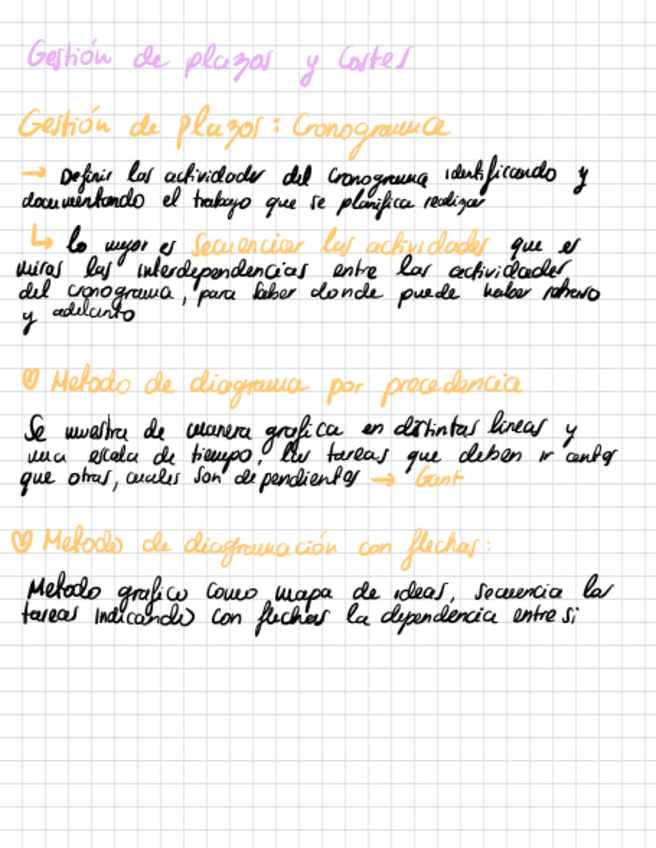 Gestión de plazos y Costes
Gestión de plazos: Cronograma
→ Definir las actividades del cronograma identificando y
documentando el trabajo que se planifica realizar
↳ lo mejor es secuenciar las actividades que es
miras las interdependencias entre las actividades
del cronograma, para saber donde puede haber retraso
y adelanto
♡ Metodo de diagrama por precedencia
Se muestra de manera grafica en distintas lineas y
una escala de tiempo, las tareas que deben ir antes
que otras, cuales son dependientes → Gant
♡ Metodo de diagramación con flechas:
Metodo grafico como mapa de ideas, secuencia las
tareas indicando con flechas la dependencia entre si